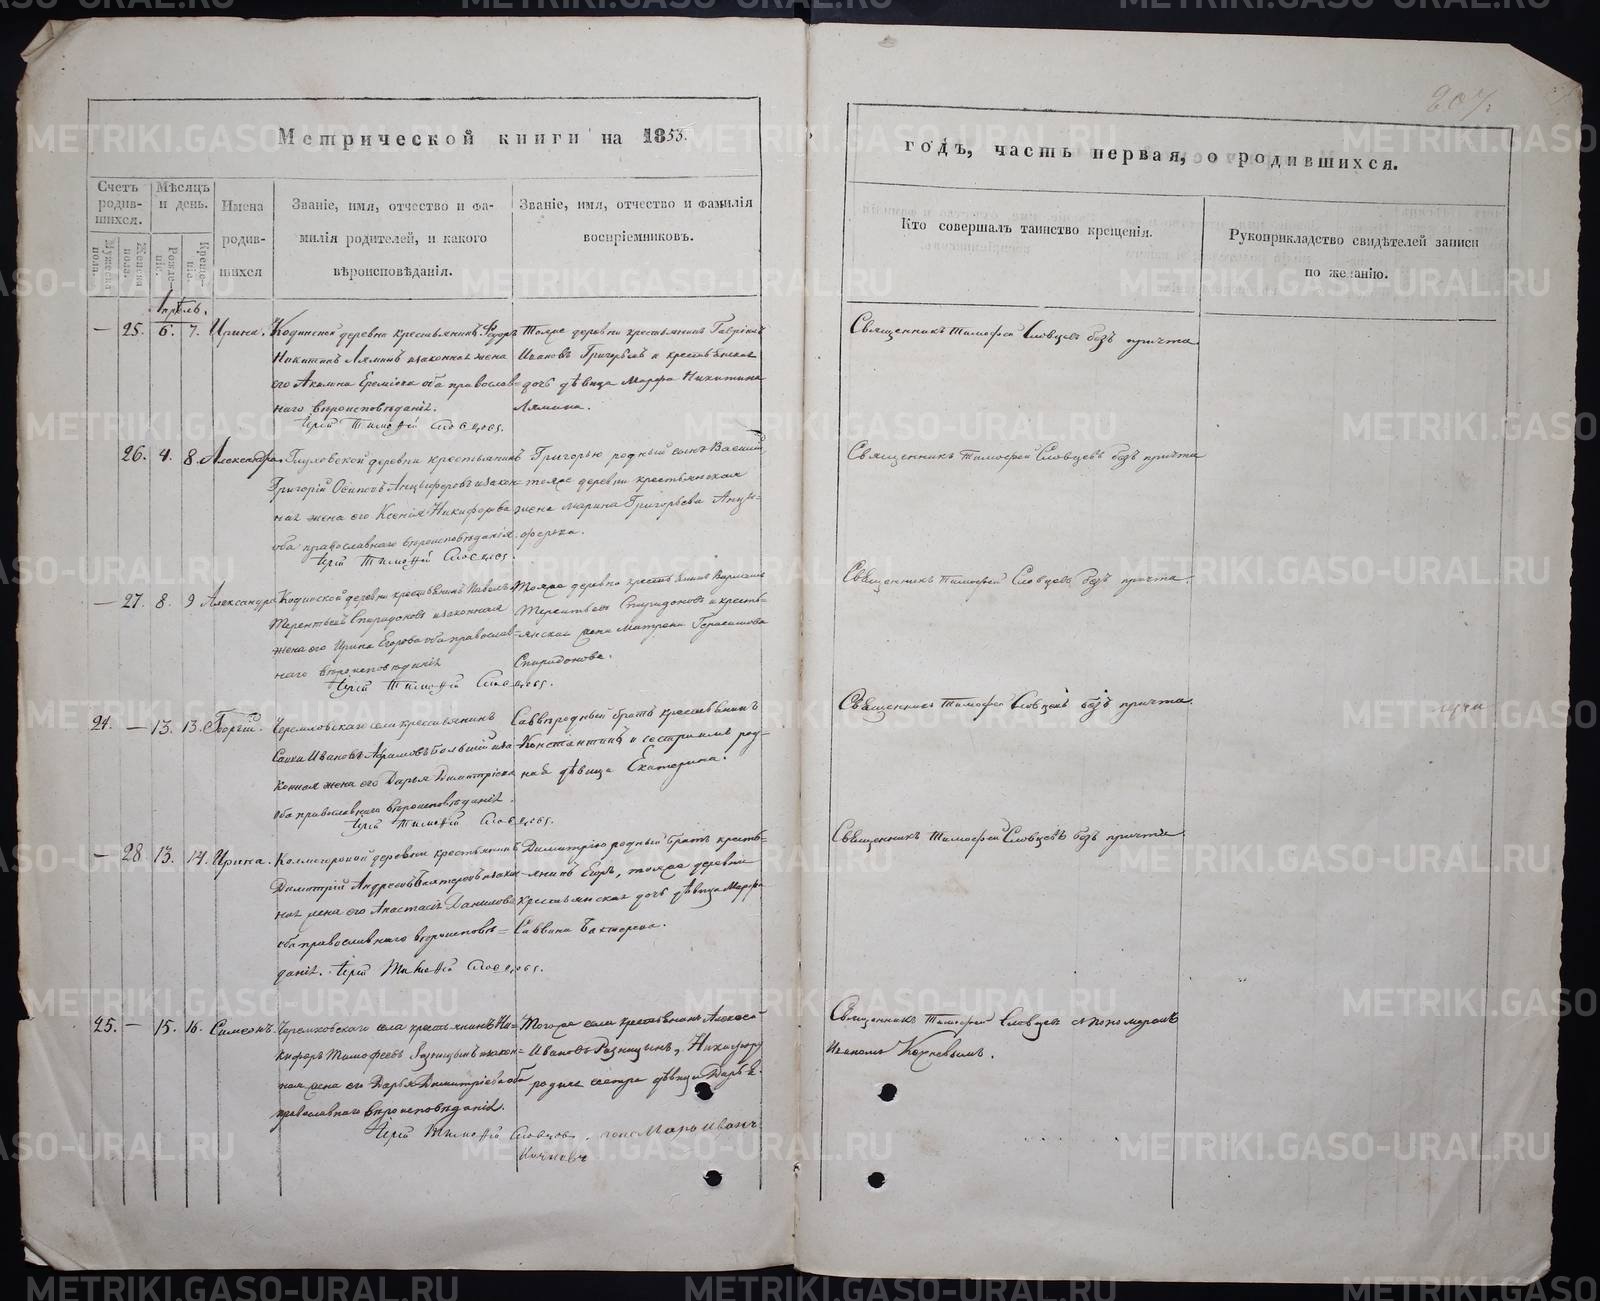 Метрической книги на 1853.
годъ, часть первая, о родившихся.
Счетъ родив-шихся.
Мѣсяцъ и день.
Имена родив-шихся
Званіе, имя, отчество и фа-
милія родителей, и какого
вѣроисповѣданія.
Званіе, имя, отчество и фамилія
воспріемниковъ.
Кто совершалъ таинство крещенія.
Рукоприкладство свидѣтелей записи
по желанію.
Мужеска пола.
Женска пола.
Рожде-ніе.
Креще-ніе.
Апрѣль.
— 25. 6. 7. Ирина.
Кодинской деревни крестьянинъ Ѳедоръ
Никитинъ Ляминъ и законная жена
его Акилина Еремѣева оба православ-
наго вѣроисповѣданія.
Іерей Тимоѳей Словцовъ.
Тойже деревни крестьянинъ Гавріилъ
Ивановъ Григорьевъ и крестьянская
дочь дѣвица Марѳа Никитина
Лямина.
Священникъ Тимофей Словцевъ безъ причта
26. 4. 8. Александра.
Глуховской деревни крестьянинъ
Григорій Осиповъ Анцыферовъ и закон-
ная жена его Ксенія Никифорова
оба православнаго вѣроисповѣданія.
Іерей Тимоѳей Словцовъ.
Григорью родный сынъ Василій,
тойже деревни крестьянская
жена Марина Григорьева Анцы-
ферова.
Священникъ Тимофей Словцевъ безъ причта
— 27. 8. 9 Александра
Кодинской деревни крестьянинъ Павелъ
Терентьевъ Спиридоновъ и законная
жена его Ирина Егорова оба православ-
наго вѣроисповѣданія
Іерей Тимоѳей Словцовъ.
Тойже деревни крестьянинъ
Терентьевъ Спиридоновъ и кресть-
янская жена Матрена Герасимова
Спиридонова.
Священникъ Тимофей Словцевъ безъ причта.
24. — 13. 13. Георгій.
Черемховскаго села крестьянинъ
Савва Ивановъ Большій и за-
конная жена его Дарья Димитріева
оба православнаго вѣроисповѣданія.
Іерей Тимоѳей Словцовъ.
Саввѣ родный братъ крестьянинъ
Константинъ и сестра имъ род-
ная дѣвица Екатерина.
Священникъ Тимофей Словцевъ безъ причта.
— 28. 13. 14. Ирина.
деревни крестьянинъ
Димитрій Андреевъ Бахтеревъ и закон-
ная жена его Анастасія Данилова
оба православнаго вѣроисповѣ-
данія. Іерей Тимоѳей Словцовъ.
Димитрію родный братъ кресть-
янинъ Егоръ, тойже деревни
крестьянская дочь дѣвица Марѳа
Саввина Бахтерева.
Священникъ Тимофей Словцевъ безъ причта
25. — 15. 16. Симеонъ.
Черемховскаго села крестьянинъ Ни-
кифоръ Тимофеевъ и закон-
ная жена его Дарья Димитріева оба
православнаго вѣроисповѣданія.
Іерей Тимоѳей Словцовъ, пономарь Иванъ
Тогоже села крестьянинъ Алексѣй
Ивановъ Никифору
родная сестра дѣвица Дарья.
Священникъ Тимофей Словцевъ съ пономаремъ
Иваномъ
METRIKI.GASO-URAL.RU